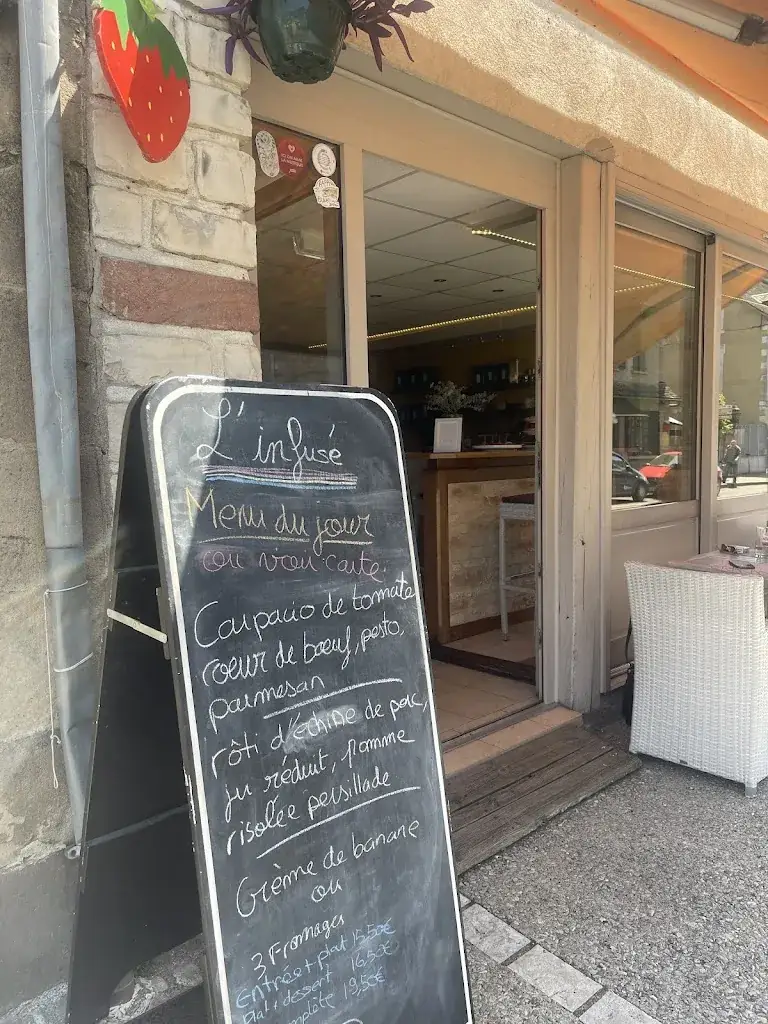 L'infusé
Menu du jour
ou voir carte
Carpacio de tomate
coeur de boeuf, pesto,
parmesan
rôti d'échine de porc,
jus réduit, pomme
risolée persillade
Crème de banane
ou
3 Fromages
Entrée + plat 15,50€
Plat + dessert 16,50€
complète 19,50€